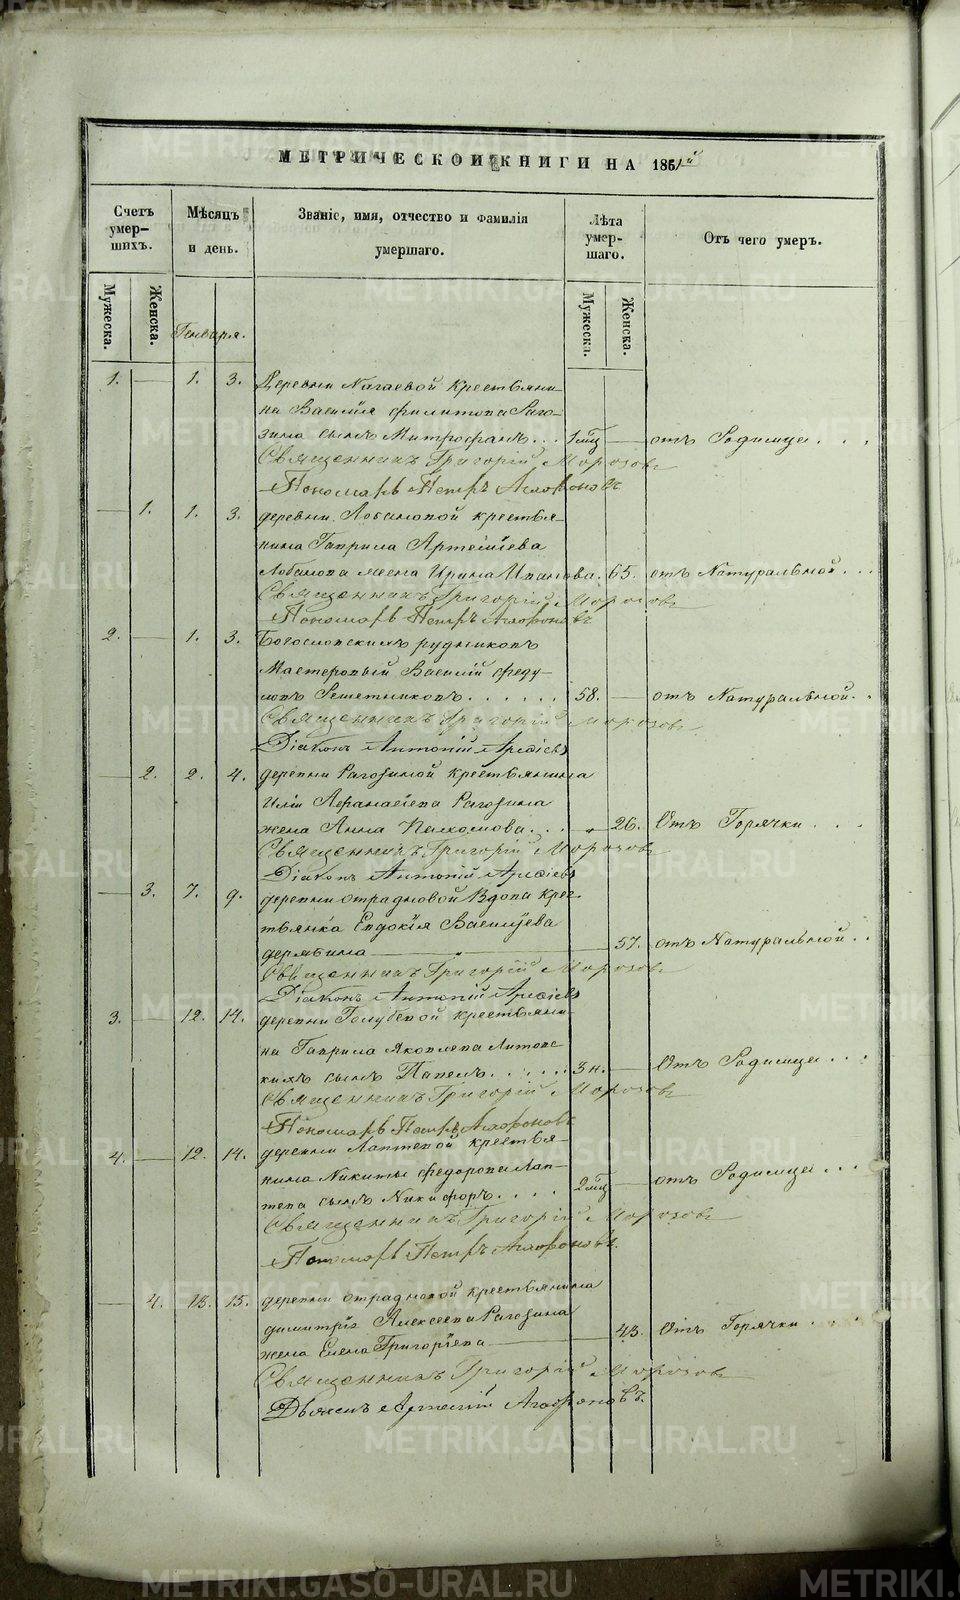 МЕТРИЧЕСКОЙ КНИГИ НА 1861й
Счетъ умер-шихъ.
Мѣсяцъ и день.
Званіе, имя, отчество и фамилія умершаго.
Лѣта умер-шаго.
Отъ чего умеръ.
Мужеска.
Женска.
Мужеска.
Женска.
Генваря.
1. 1. 3. Деревни Нагаевой крестьяни-
на Василія Филипова Раго-
зина сынъ Митрофанъ... 1 мц отъ Родимца...
Священникъ Григорій Морозовъ
Пономарь Петръ Агафоновъ
1. 1. 3. деревни Лобановой крестья-
нина Гаврила Артеміева
Лобанова жена Ирина Иванова. 65. отъ Натуральной...
Священникъ Григорій Морозовъ
Пономарь Петръ Агафоновъ
2. 1. 3. Богословскихъ рудниковъ
Мастеровый Василій Феду-
ловъ Решетниковъ...... 58. отъ Натуральной..
Священникъ Григорій Морозовъ
Діаконъ Антоній
2. 2. 4. деревни Рагозиной крестьянина
Иліи Афанасіева Рагозина
жена Анна Пахомова... 26. Отъ Горячки...
Священникъ Григорій Морозовъ
Діаконъ Антоній
3. 7. 9. деревни Отрадновой Вдова крес-
тьянка Евдокія Васильева
дерябина 57. отъ Натуральной..
Священникъ Григорій Морозовъ
Діаконъ Антоній
3. 12. 14. деревни Голубевой крестьяни-
на Гаврила Яковлева Литовс-
кихъ сынъ Павелъ...... 3 н. Отъ Родимца...
Священникъ Григорій Морозовъ
Пономарь Петръ Агафоновъ
4. 12. 14. деревни Лаптевой крестья-
нина Никиты Федорова Лап-
тева сынъ Никифоръ.... 2 мц отъ Родимца...
Священникъ Григорій Морозовъ
Пономарь Петръ Агафоновъ.
4. 13. 15. деревни Отрадновой крестьянина
димитрія Алексеева Рагозина
жена Елена Григоріева 43. Отъ Горячки...
Священникъ Григорій Морозовъ
Артемій Агафоновъ.
METRIKI.GASO-URAL.RU